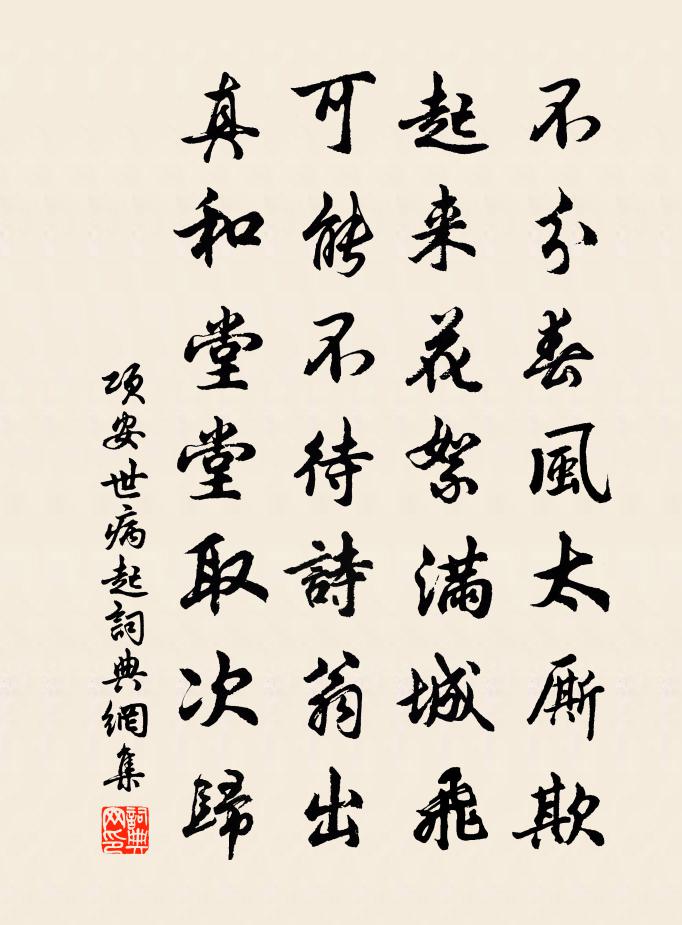 不分春風太厮欺
起来花絮滿城飛
可能不待詩翁出
真和堂堂取次歸
項安世病起詞典網集
詞典網印